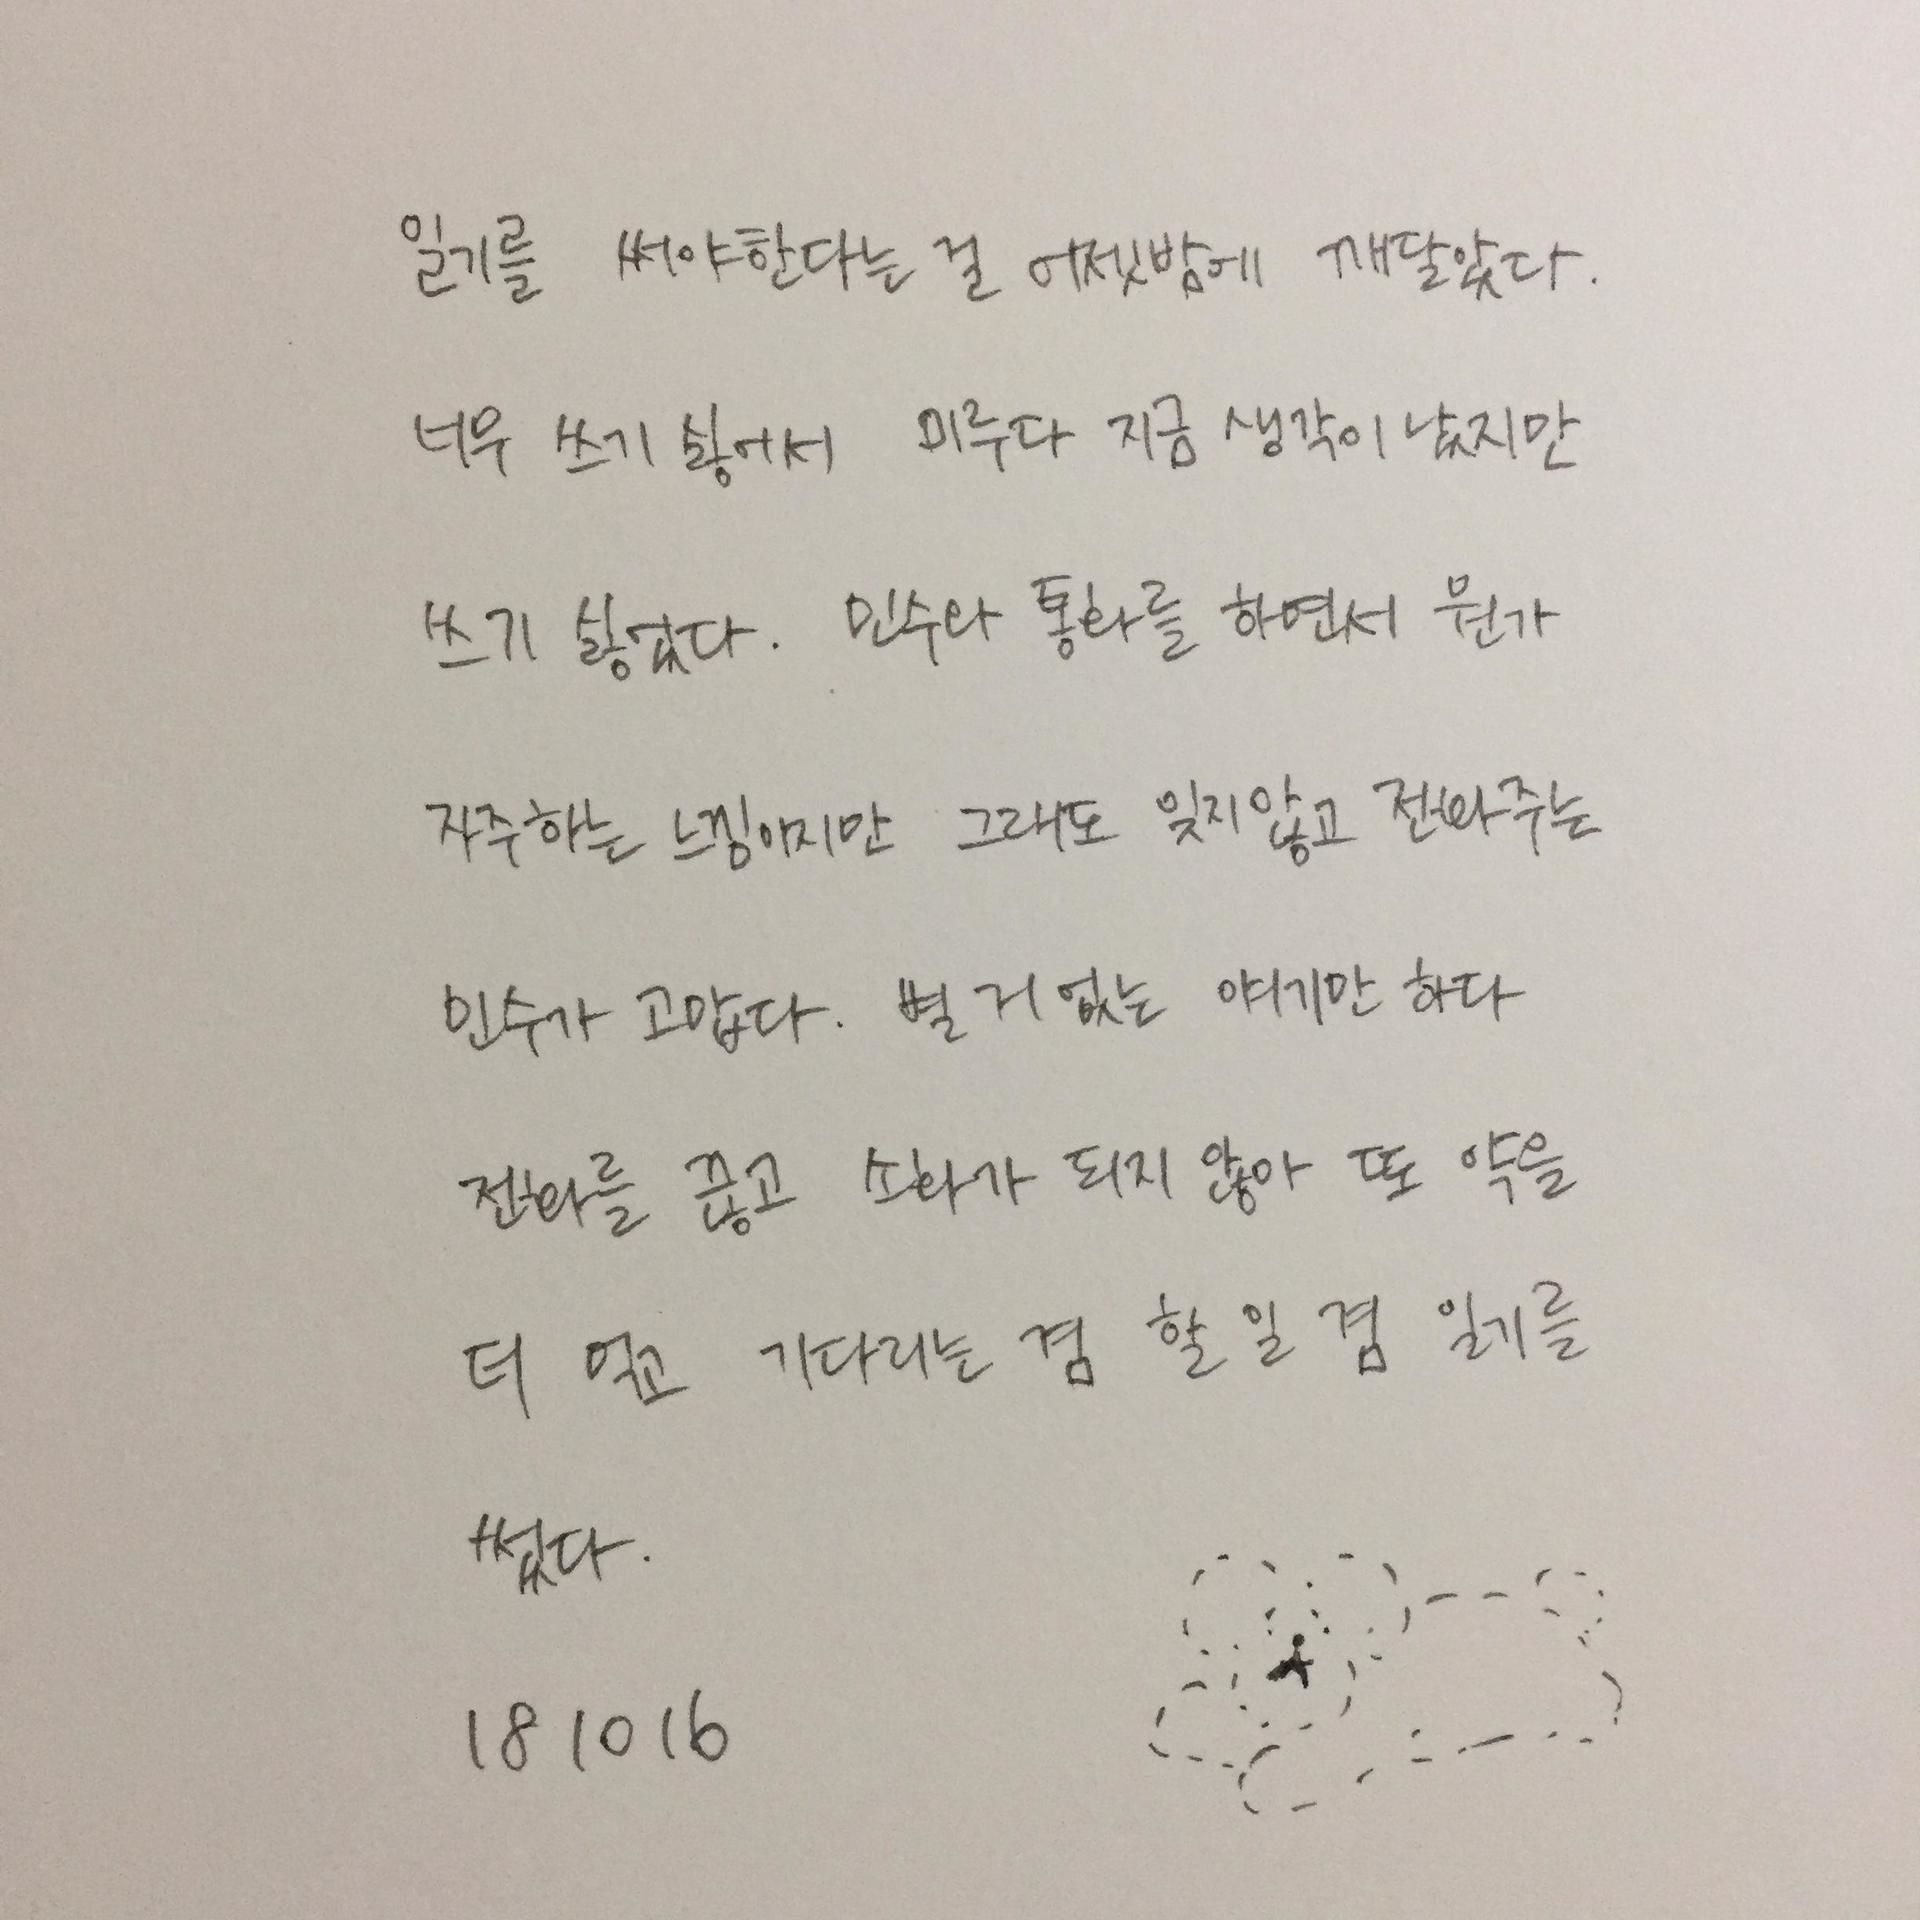 일기를 써야한다는 걸 어젯밤에 깨달았다.
너무 쓰기 싫어서 미루다 지금 생각이 났지만
쓰기 싫었다. 민수와 통화를 하면서 뭔가
자주하는 느낌이지만 그래도 잊지않고 전화주는
민수가 고맙다. 별 거 없는 얘기만 하다
전화를 끊고 소화가 되지 않아 또 약을
더 먹고 기다리는 겸 할 일 겸 일기를
썼다.
181016